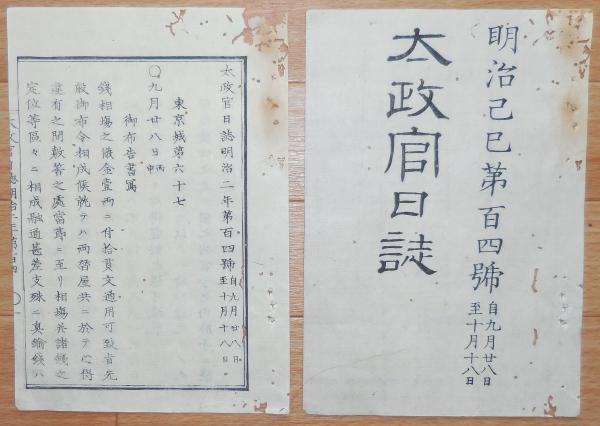 明治己巳第百四號
自九月廿八日
至十月十八日
太政官日誌
太政官日誌明治二年第百四號
自九月廿八日
至十月十八日
東京城第六十七
〇九月廿八日丙申
御布告書寫
錢相塲之儀金壹兩ニ付拾貫文通用可致旨先
般御布令相成候就テハ兩替屋共ニ於テ心得
違有之間敷筈之處當節ニ至リ相塲并諸錢之
定位等區々ニ相成融通甚差支殊ニ真鍮錢ハ